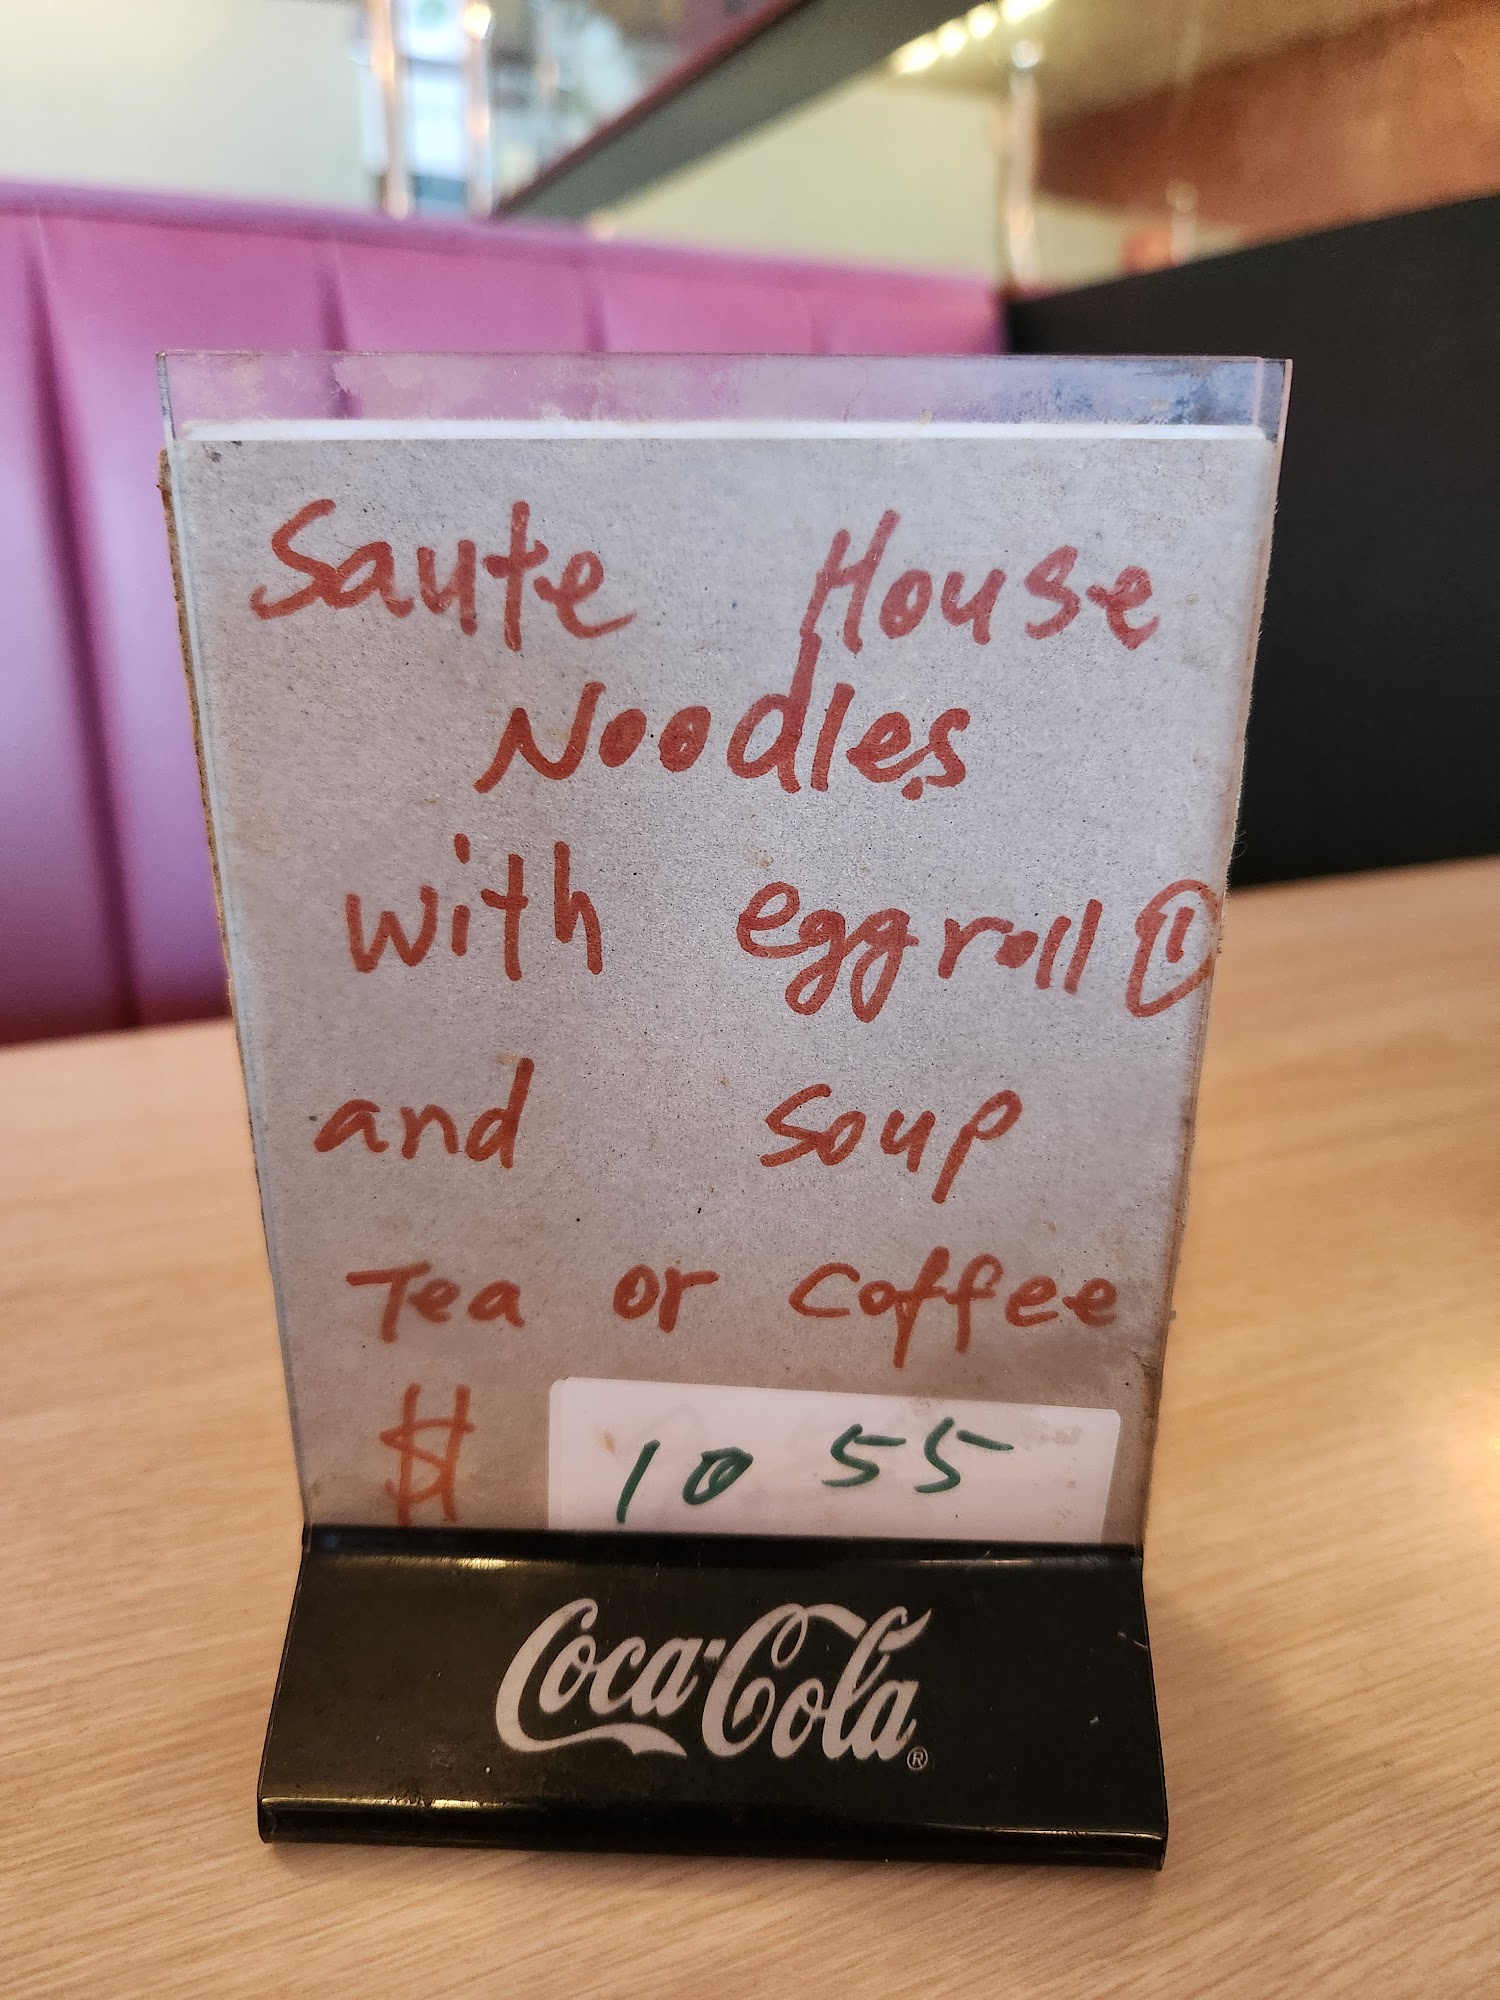 Saute House
Noodles
with eggroll ①
and soup
Tea or coffee
$ 10 55
Coca-Cola®